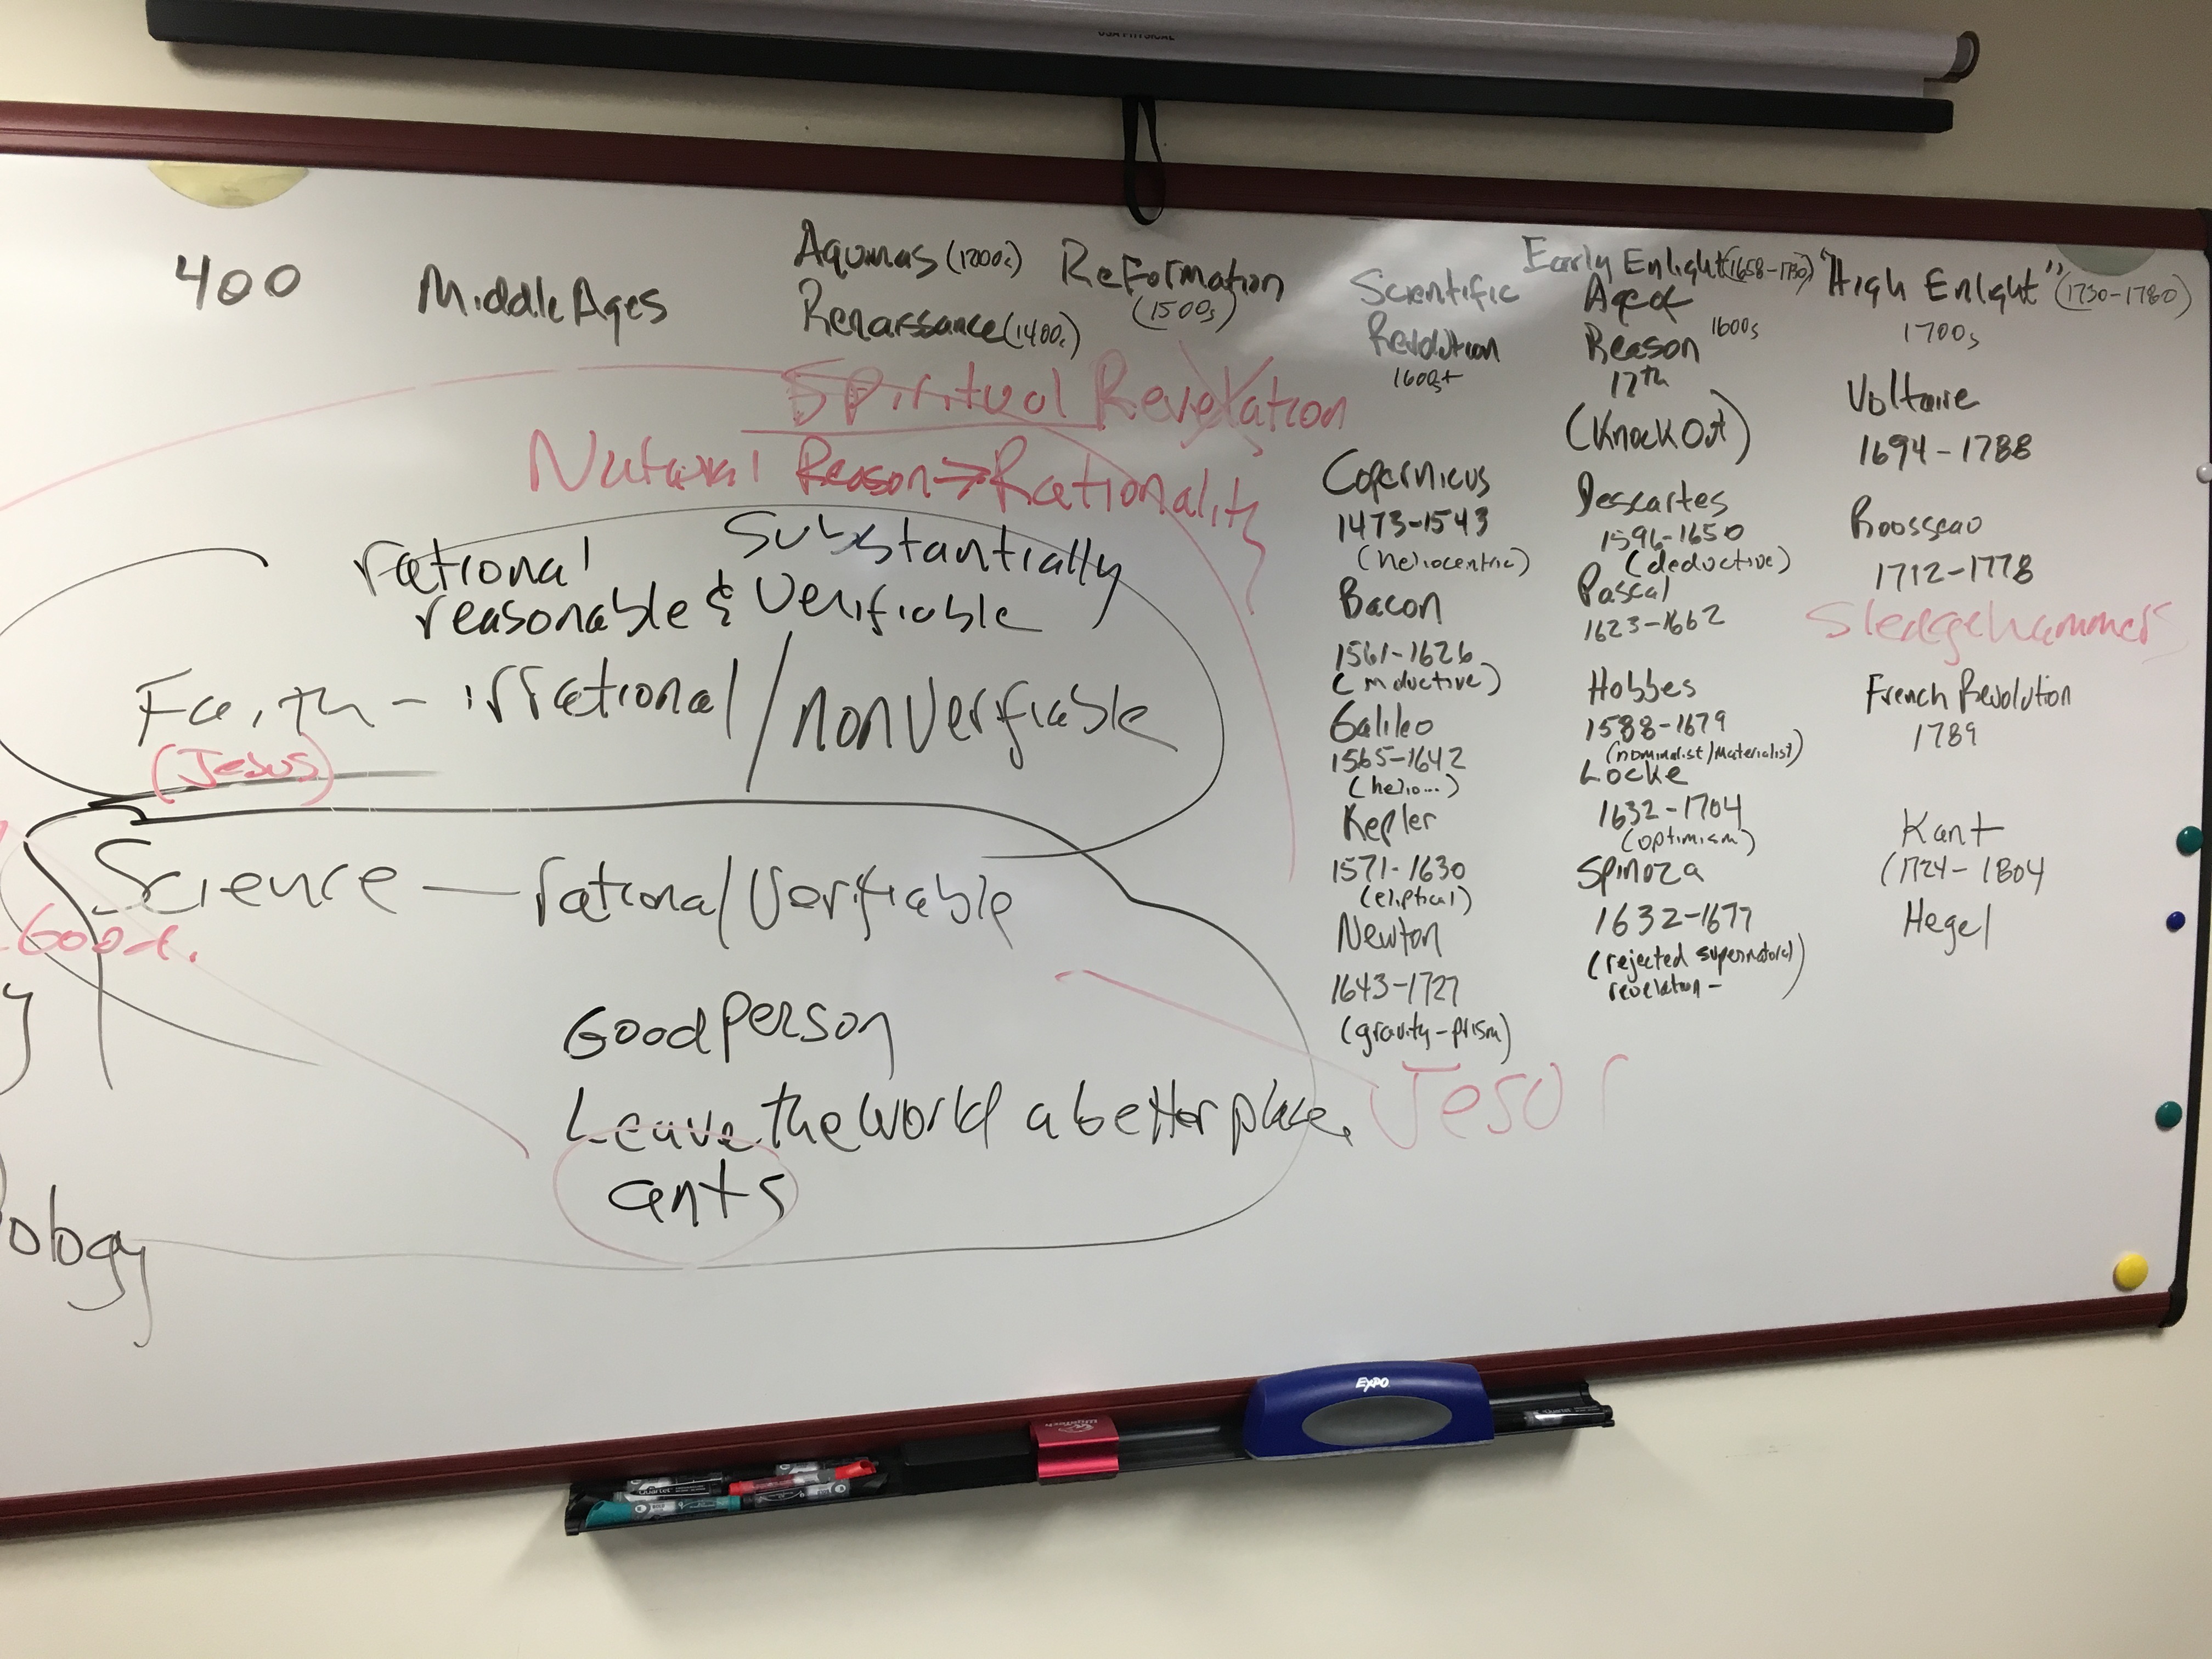 400
Middle Ages
Aquinas (1200s)
Renaissance (1400s)
Reformation
(1500s)
Scientific
Revolution
1600s+
Early Enlight (1658-1730)
Age of
Reason 1600s
17th
(Knock Out)
"High Enlight" (1730-1780)
1700s
Spiritual Revelation
Natural Reason → Rationality
rational substantially
reasonable & verifiable
Faith - irrational / nonverifiable
(Jesus)
Science — rational/verifiable
Good.
y
Good person
Leave the world a better place.
ants
ology
Copernicus
1473-1543
(heliocentric)
Bacon
1561-1626
(inductive)
Galileo
1565-1642
(helio...)
Kepler
1571-1630
(eliptical)
Newton
1643-1727
(gravity-prism)
Descartes
1596-1650
(deductive)
Pascal
1623-1662
Hobbes
1588-1679
(nominalist/materialist)
Locke
1632-1704
(optimism)
Spinoza
1632-1677
(rejected supernatural)
revelation-
Voltaire
1694-1788
Roosseau
1712-1778
Sledgehammer
French Revolution
1789
Kant
(1724-1804
Hegel
EXPO
Quartet
Quartet